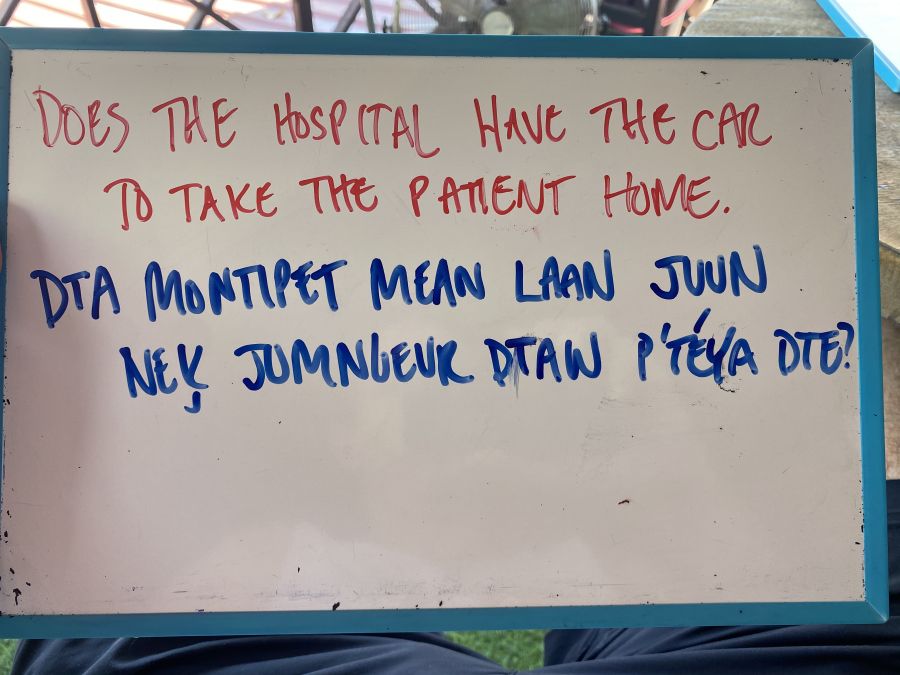 DOES THE HOSPITAL HAVE THE CAR
TO TAKE THE PATIENT HOME.
DTA MONTIPET MEAN LAAN JUUN
NEK̡ JUMNUEUR DTAW P'TÉYA DTE?